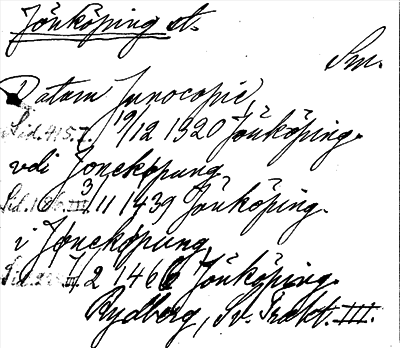 Jönköping st.
Sm.
Datum Junocopie,
Sid. 415. 7. 19/12 1320 Jönköping.
vdi Jonekopung,
Sid. 3/11 1439 Jönköping.
i Jonekopung,
Sid. 2 1466 Jönköping.
Rydberg, Sv. Trakt. III.